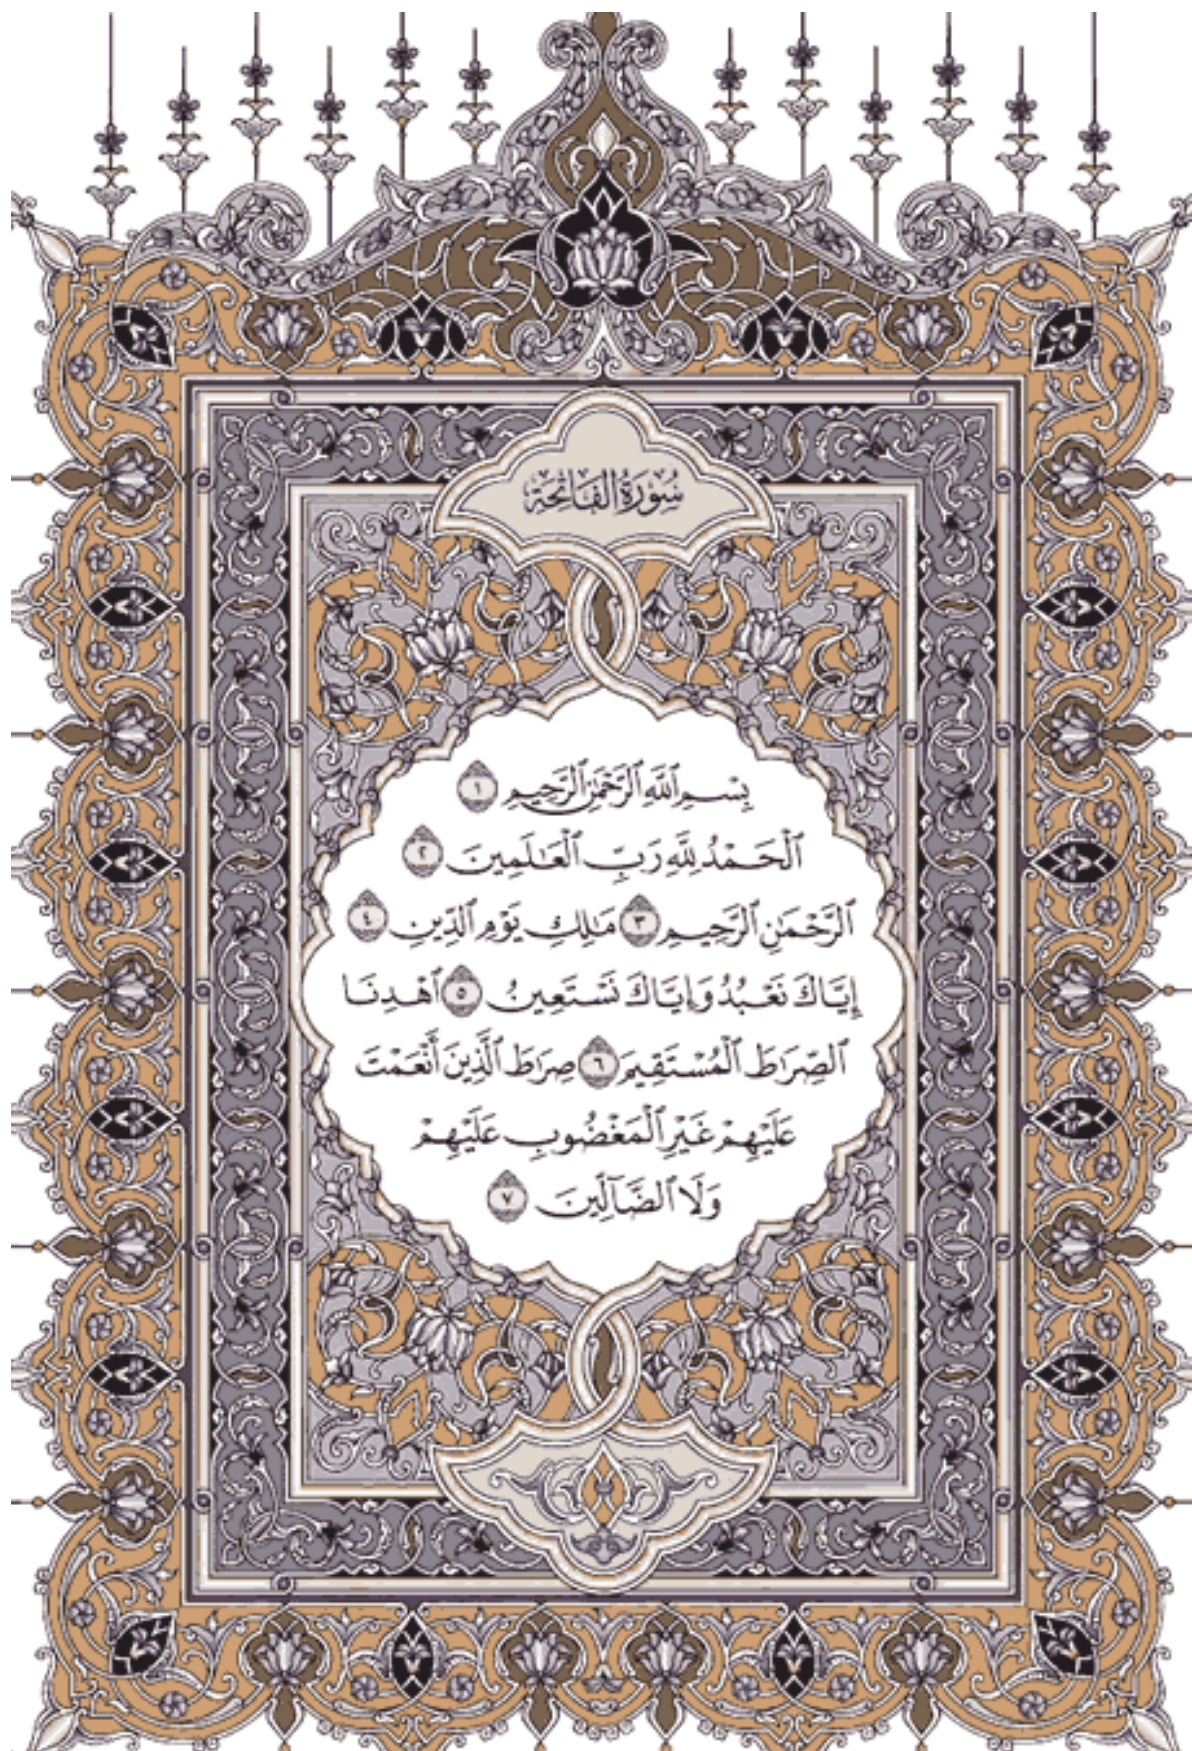 سُورَةُ الْفَاتِحَة
بِسْمِ ٱللَّهِ ٱلرَّحْمَٰنِ ٱلرَّحِيمِ ١
ٱلْحَمْدُ لِلَّهِ رَبِّ ٱلْعَٰلَمِينَ ٢
ٱلرَّحْمَٰنِ ٱلرَّحِيمِ ٣ مَٰلِكِ يَوْمِ ٱلدِّينِ ٤
إِيَّاكَ نَعْبُدُ وَإِيَّاكَ نَسْتَعِينُ ٥ ٱهْدِنَا
ٱلصِّرَٰطَ ٱلْمُسْتَقِيمَ ٦ صِرَٰطَ ٱلَّذِينَ أَنْعَمْتَ
عَلَيْهِمْ غَيْرِ ٱلْمَغْضُوبِ عَلَيْهِمْ
وَلَا ٱلضَّآلِّينَ ٧